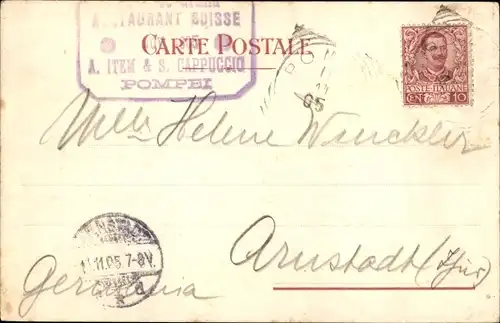 RESTAURANT SUISSE
A. ITEM & S. CAPPUCCIO
POMPEI
CARTE POSTALE
POSTE·ITALIANE
CENT 10
05
Mlle Helene Winckler
11.11.05.7-8V.
Arnstadt (Thür)
Germania